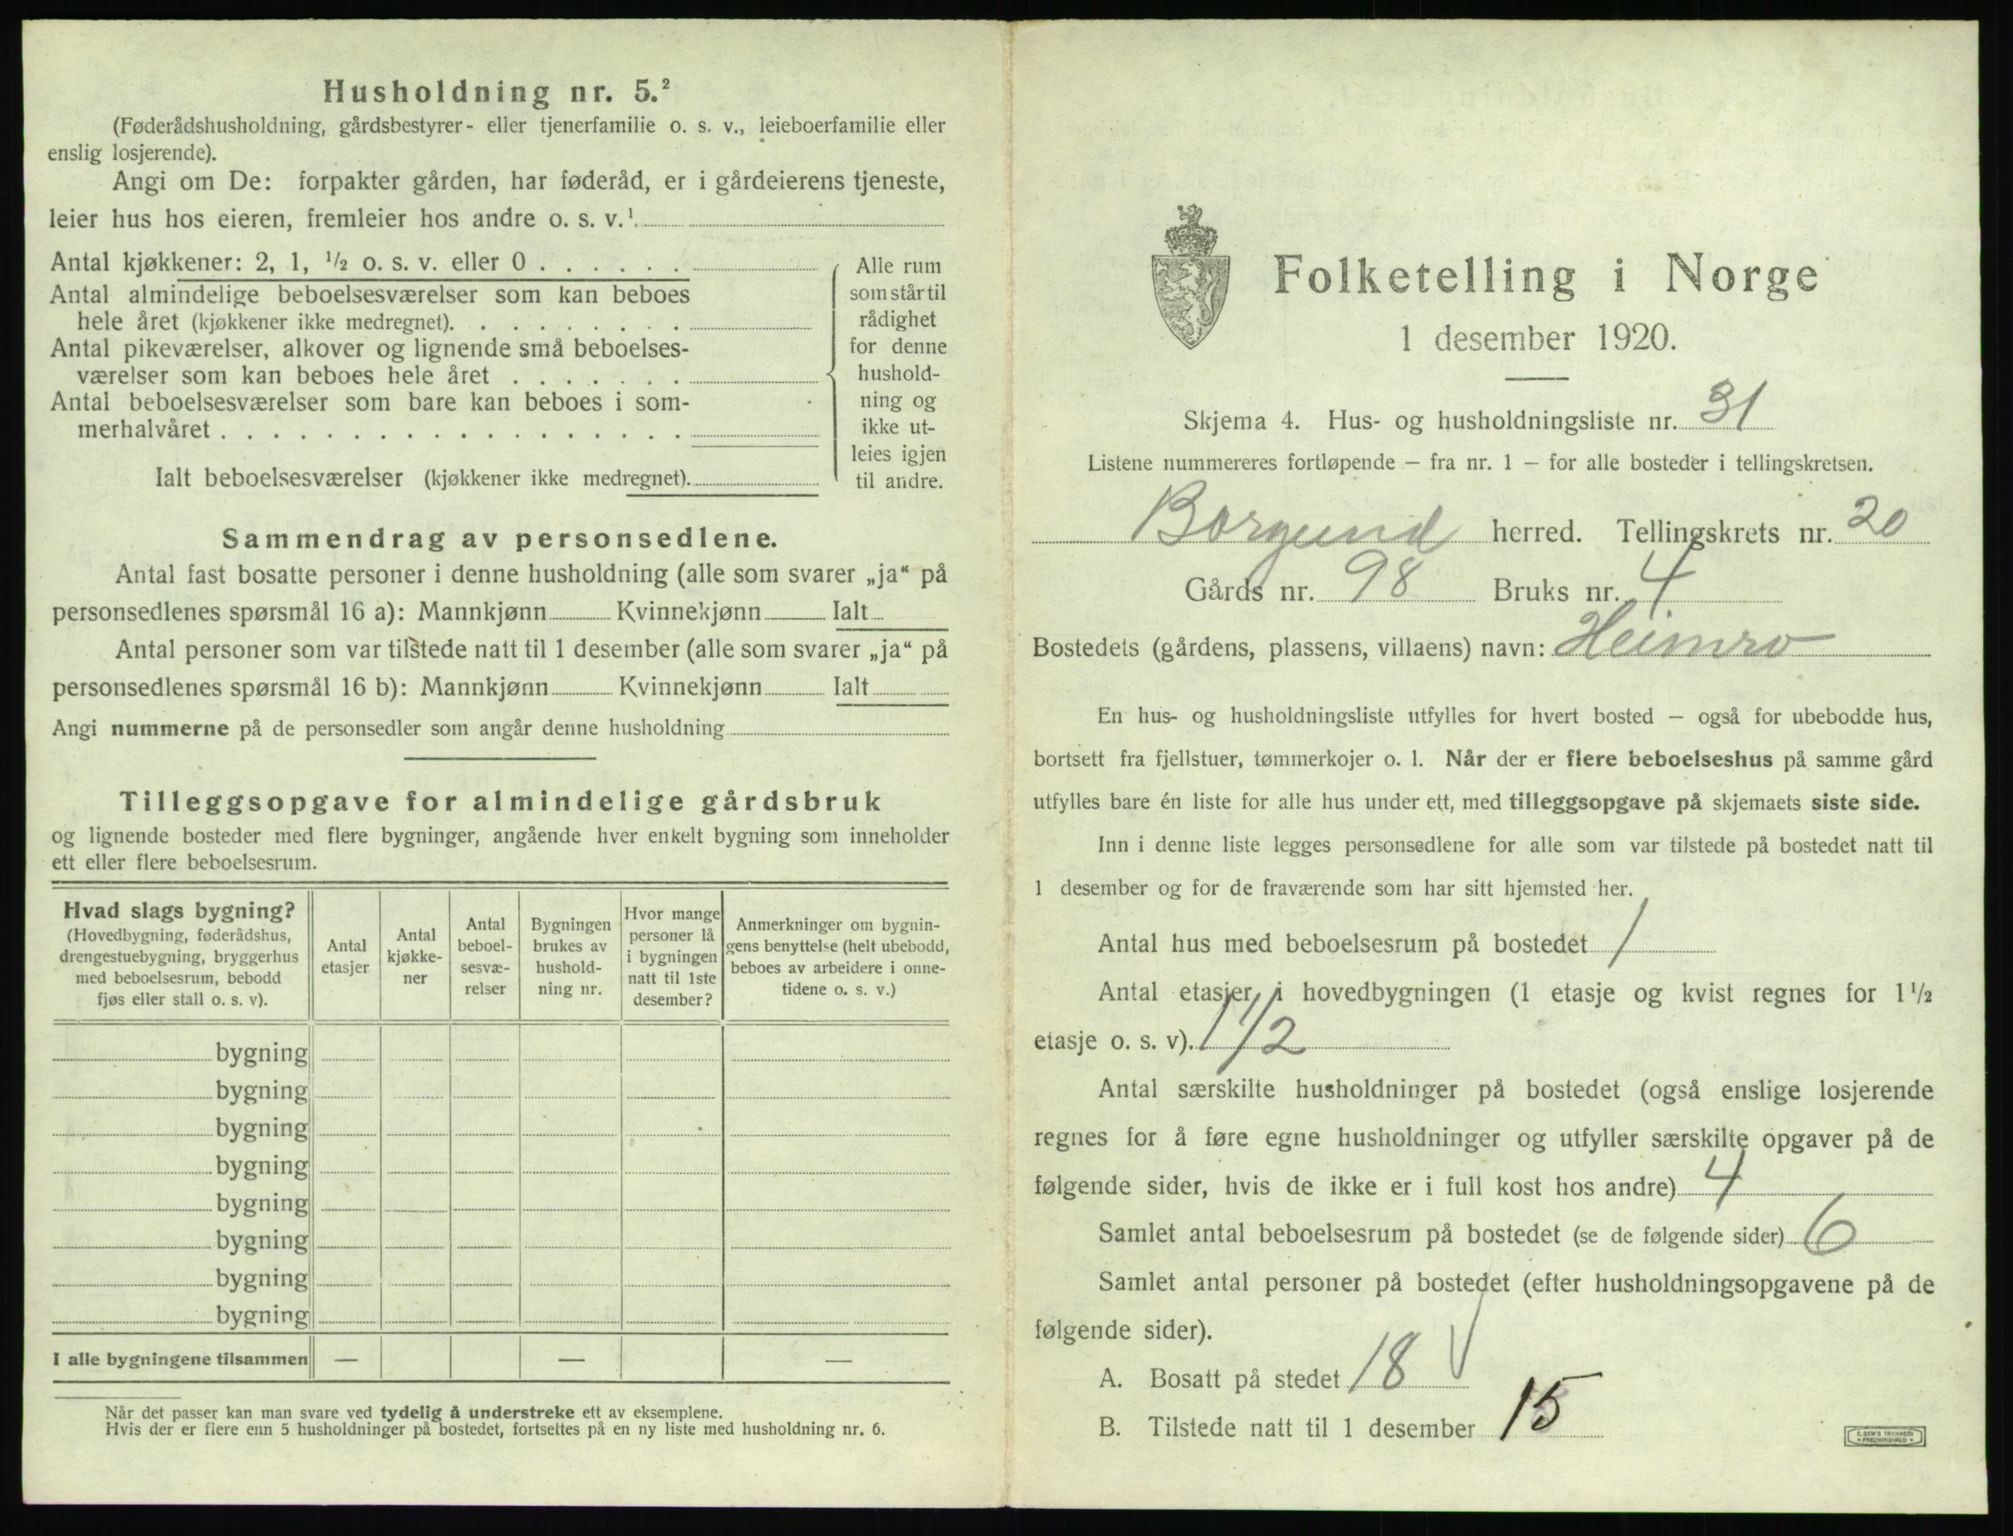 Husholdning nr. 5.²
(Føderådshusholdning, gårdsbestyrer- eller tjenerfamilie o. s. v., leieboerfamilie eller
enslig losjerende).
Angi om De: forpakter gården, har føderåd, er i gårdeierens tjeneste,
leier hus hos eieren, fremleier hos andre o. s. v.¹
Antal kjøkkener: 2, 1, ½ o. s. v. eller 0 . . . . . .
Antal almindelige beboelsesværelser som kan beboes
hele året (kjøkkener ikke medregnet). . . . . . . . .
Antal pikeværelser, alkover og lignende små beboelses-
værelser som kan beboes hele året . . . . . . .
Antal beboelsesværelser som bare kan beboes i som-
merhalvåret . . . . . . . . . . . . . . . . . .
Ialt beboelsesværelser (kjøkkener ikke medregnet).
Alle rum
som står til
rådighet
for denne
hushold-
ning og
ikke ut-
leies igjen
til andre.
Sammendrag av personsedlene.
Antal fast bosatte personer i denne husholdning (alle som svarer „ja“ på
personsedlenes spørsmål 16 a): Mannkjønn Kvinnekjønn Ialt
Antal personer som var tilstede natt til 1 desember (alle som svarer „ja“ på
personsedlenes spørsmål 16 b): Mannkjønn Kvinnekjønn Ialt
Angi nummerne på de personsedler som angår denne husholdning
Tilleggsopgave for almindelige gårdsbruk
og lignende bosteder med flere bygninger, angående hver enkelt bygning som inneholder
ett eller flere beboelsesrum.
Hvad slags bygning?
(Hovedbygning, føderådshus,
drengestuebygning, bryggerhus
med beboelsesrum, bebodd
fjøs eller stall o. s. v).
Antal
etasjer
Antal
kjøkke-
ner
Antal
beboel-
sesvæ-
relser
Bygningen
brukes av
hushold-
ning nr.
Hvor mange
personer lå
i bygningen
natt til 1ste
desember?
Anmerkninger om bygnin-
gens benyttelse (helt ubebodd,
beboes av arbeidere i onne-
tidene o. s. v.)
bygning
bygning
bygning
bygning
bygning
bygning
bygning
bygning
I alle bygningene tilsammen — — —
Når det passer kan man svare ved tydelig å understreke ett av eksemplene.
Hvis der er flere enn 5 husholdninger på bostedet, fortsettes på en ny liste med husholdning nr. 6.
Folketelling i Norge
1 desember 1920.
Skjema 4. Hus- og husholdningsliste nr. 31
Listene nummereres fortløpende – fra nr. 1 – for alle bosteder i tellingskretsen.
Borgund herred. Tellingskrets nr. 20
Gårds nr. 98 Bruks nr. 4
Bostedets (gårdens, plassens, villaens) navn: Heimro
En hus- og husholdningsliste utfylles for hvert bosted – også for ubebodde hus,
bortsett fra fjellstuer, tømmerkojer o. l. Når der er flere beboelseshus på samme gård
utfylles bare én liste for alle hus under ett, med tilleggsopgave på skjemaets siste side.
Inn i denne liste legges personsedlene for alle som var tilstede på bostedet natt til
1 desember og for de fraværende som har sitt hjemsted her.
Antal hus med beboelsesrum på bostedet 1
Antal etasjer i hovedbygningen (1 etasje og kvist regnes for 1½
etasje o. s. v). 1 1/2
Antal særskilte husholdninger på bostedet (også enslige losjerende
regnes for å føre egne husholdninger og utfyller særskilte opgaver på de
følgende sider, hvis de ikke er i full kost hos andre) 4
Samlet antal beboelsesrum på bostedet (se de følgende sider) 6
Samlet antal personer på bostedet (efter husholdningsopgavene på de
følgende sider).
A. Bosatt på stedet 18 √
B. Tilstede natt til 1 desember 15
E. SEM'S TRYKKERI
• FREDRIKSHALD •